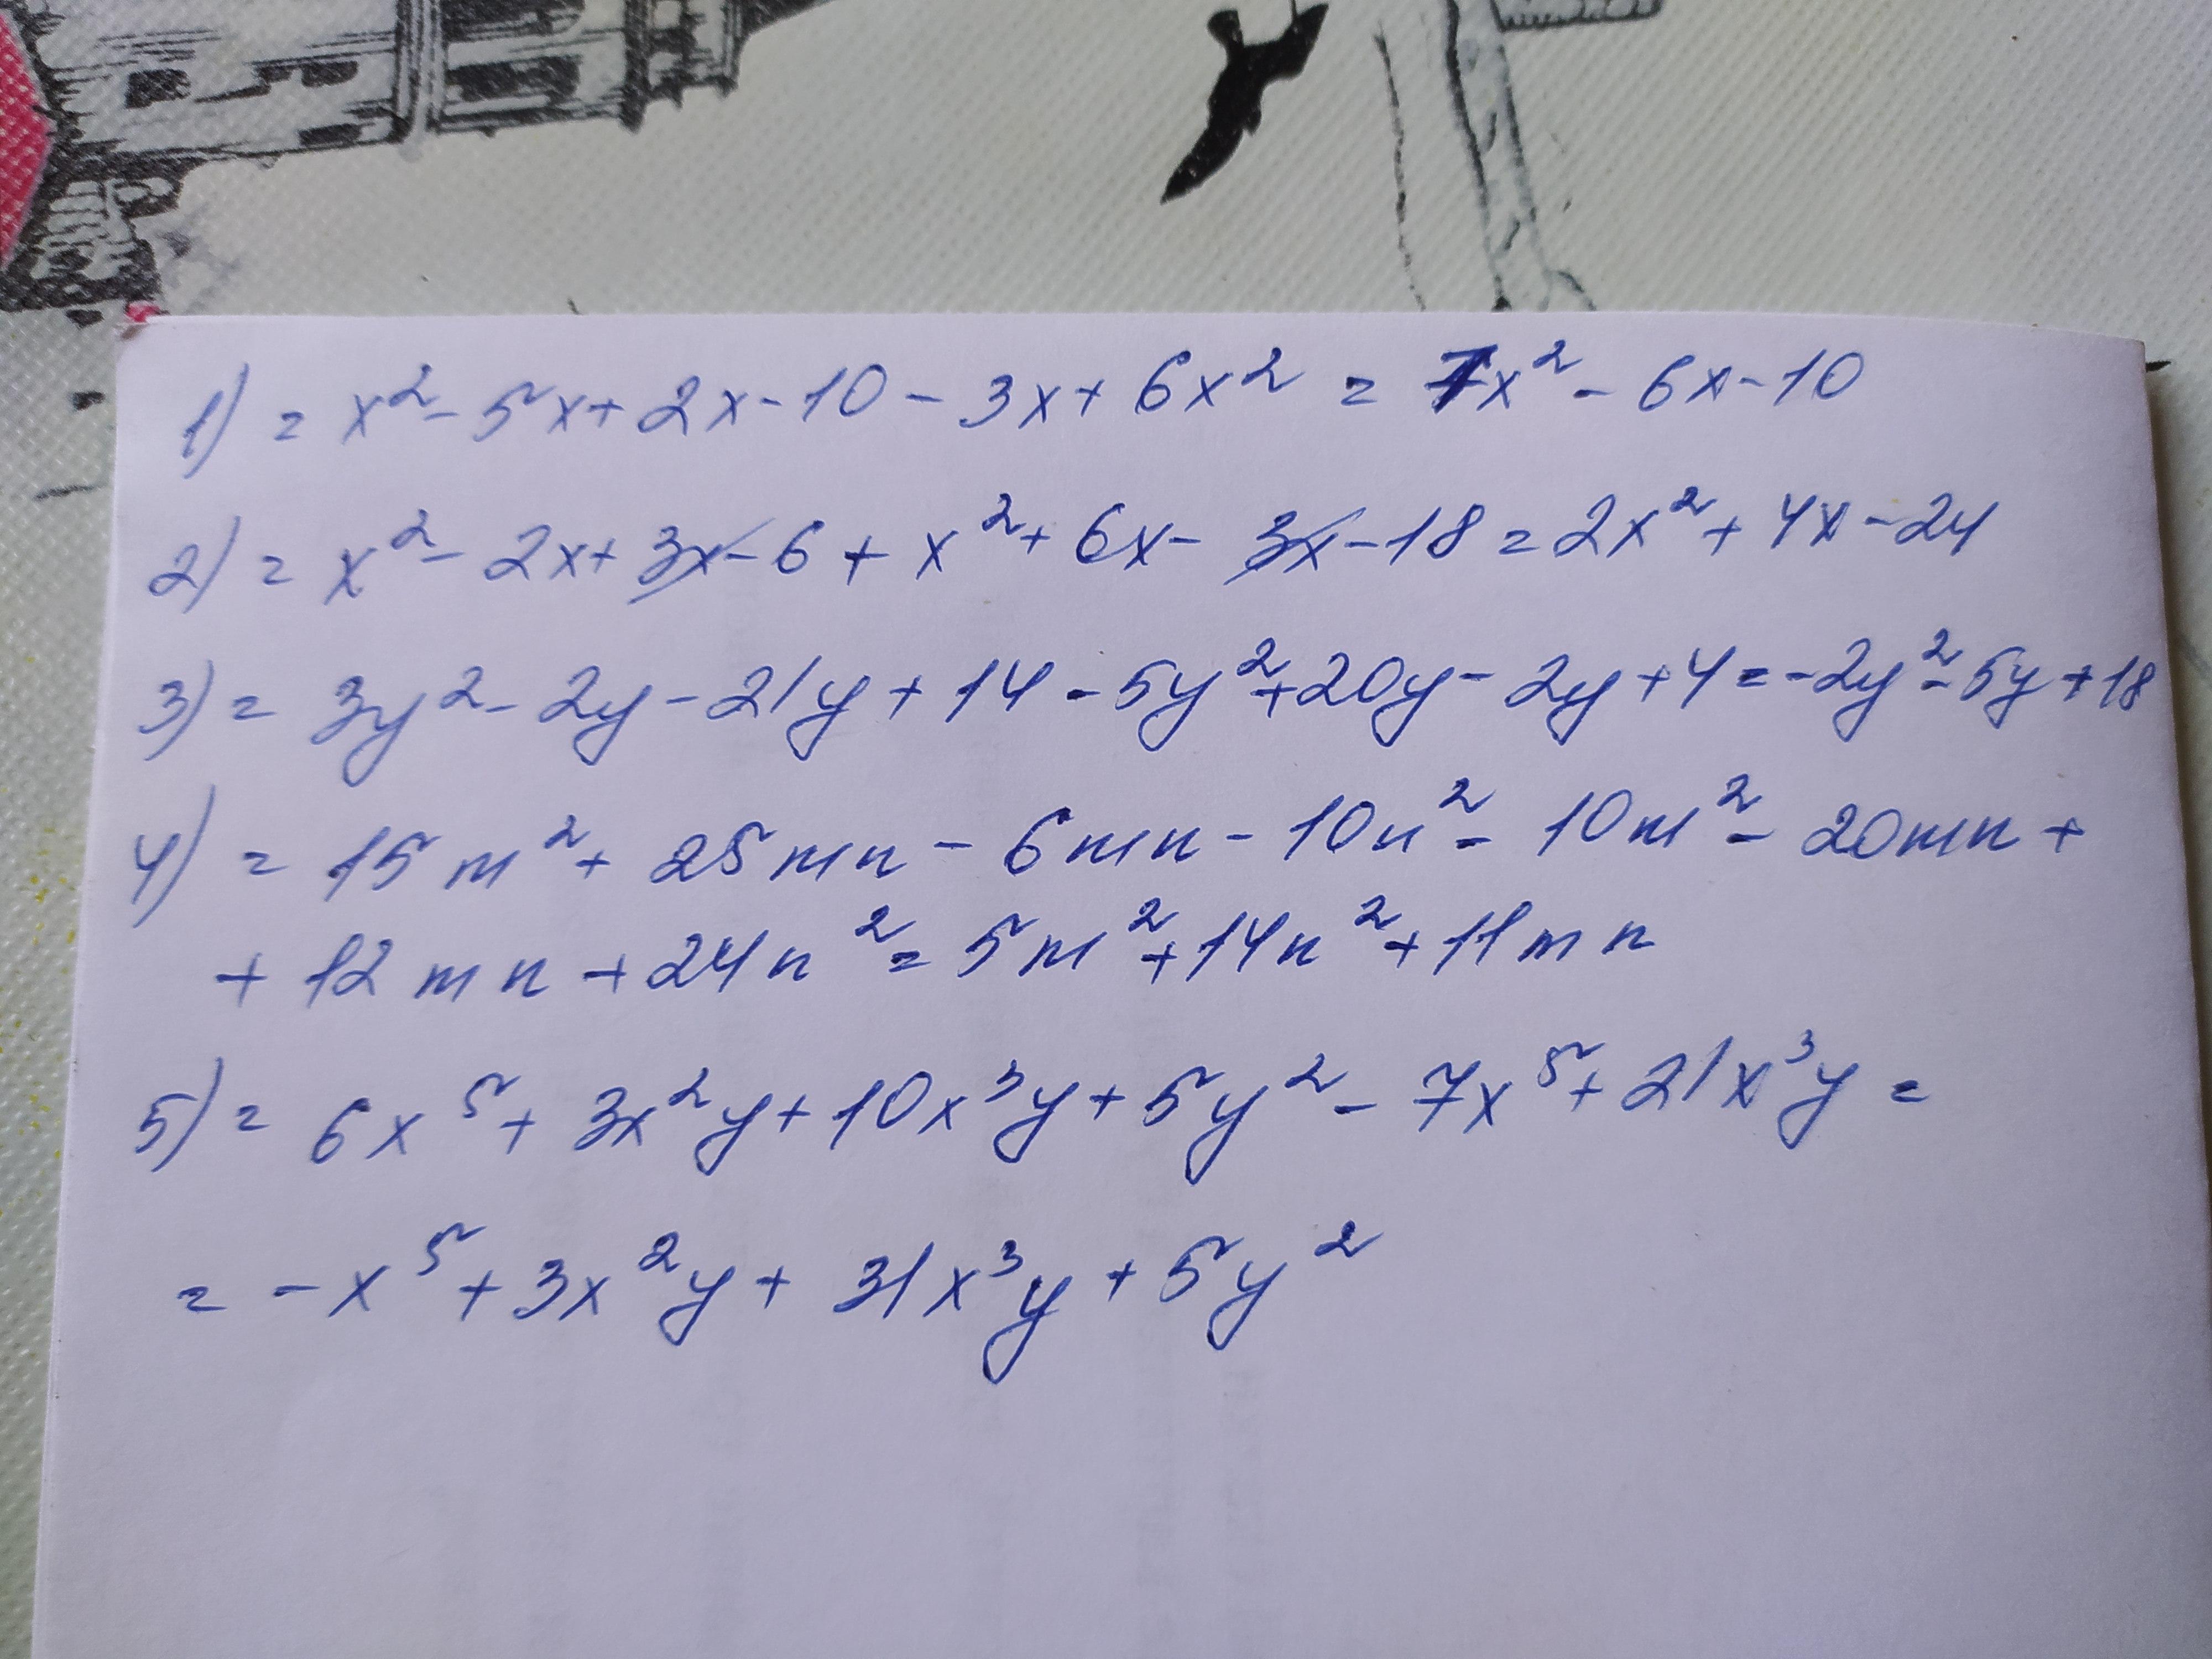 1) = x² - 5x + 2x - 10 - 3x + 6x² = 7x² - 6x - 10
2) = x² - 2x + 3x - 6 + x² + 6x - 3x - 18 = 2x² + 4x - 24
3) = 3y² - 2y - 21y + 14 - 5y² + 20y - 2y + 4 = -2y² - 5y + 18
4) = 15m² + 25mn - 6mn - 10n² - 10m² - 20mn +
+ 12mn + 24n² = 5m² + 14n² + 11mn
5) = 6x⁵ + 3x²y + 10x³y + 5y² - 7x⁵ + 21x³y =
= -x⁵ + 3x²y + 31x³y + 5y²